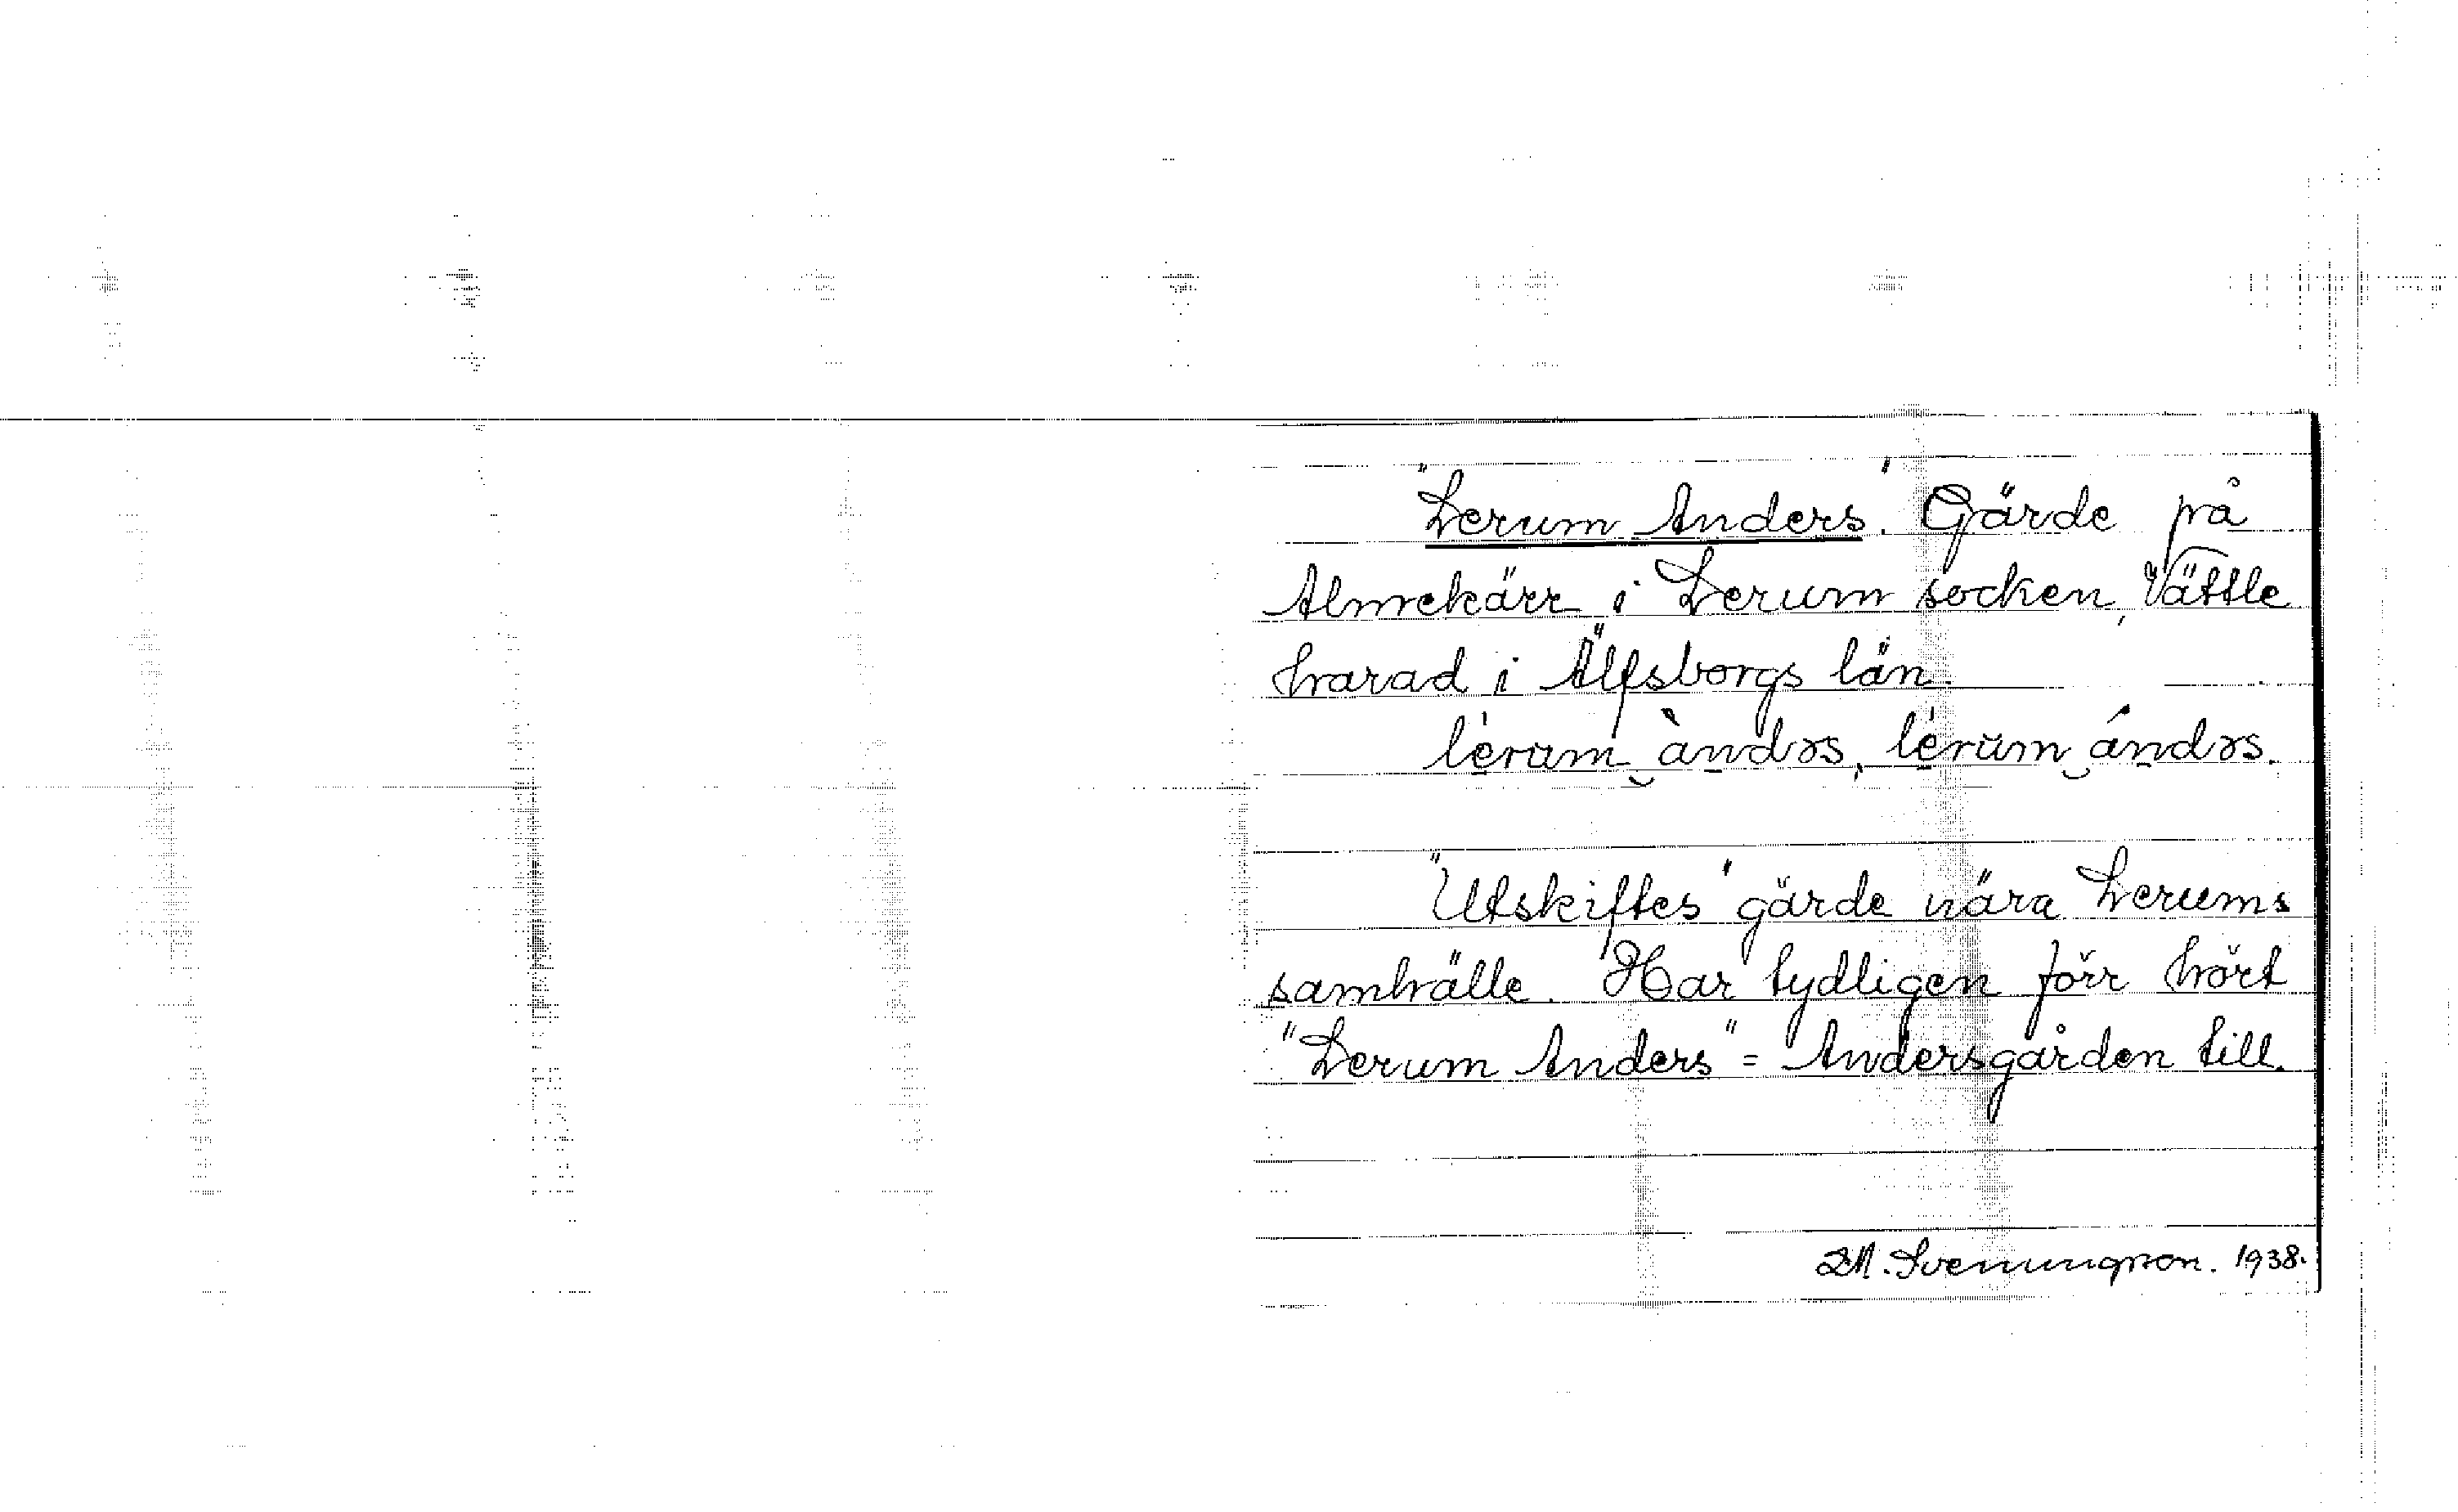 "Lerum Anders". Gärde på
Almekärr i Lerum socken, Vättle
harad i Älfsborgs län.
lèrum‿àndɘs, lérum‿ándɘs.
"Utskiftes" gärde nära Lerums
samhälle. Har tydligen förr hört
"Lerum Anders" = Andersgården till.
Svenungson. 1938.